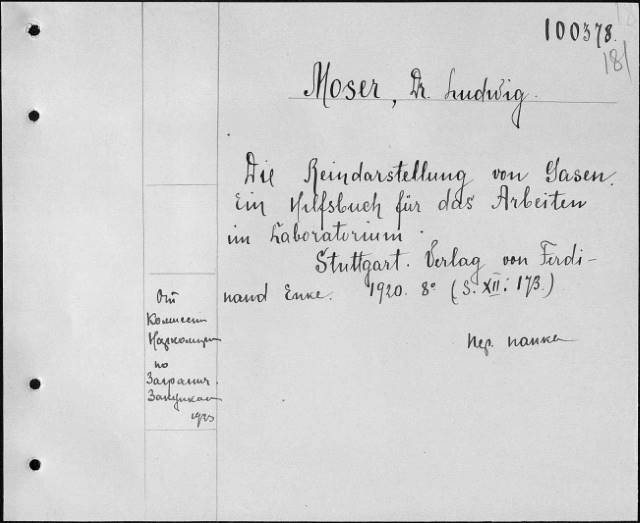 100378.
181
Moser, Dr. Ludwig.
Die Reindarstellung von Gasen.
Ein Hilfsbuch für das Arbeiten
im Laboratorium.
Stuttgart. Verlag von Ferdi-
nand Enke. 1920. 8° (S. XII: 173.)
пер. папка
От
Комиссии
по
Загранич.
Закупкам
1923